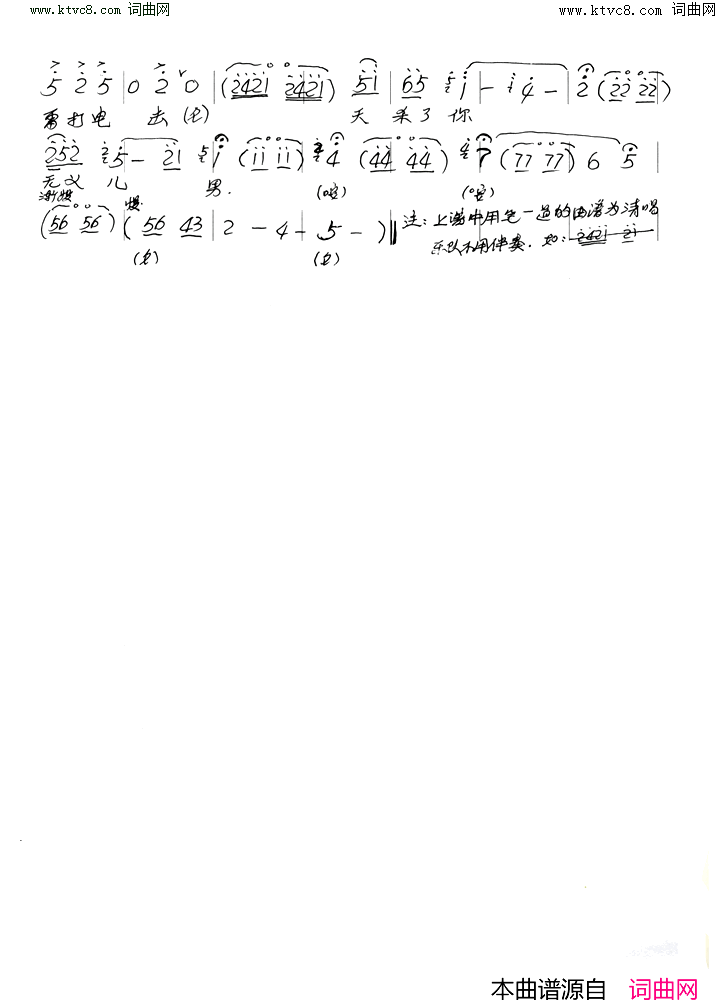 www.ktvc8.com 词曲网 www.ktvc8.com 词曲网
5 2 5 | 0 2 0 | (2421 2421) 51 | 65 5 1 - 4 - | 2 (22 22)
雷打电 去(七) 天杀了你
252 5 - 21 5 1 (11 11) 4 (44 44) 7 (77 77) 6 5 |
无义儿 男. (哐) (哐)
渐慢 慢
(56 56) (56 43 | 2 - 4 - 5 - )
(七) (七)
注: 上谱中用笔一道的曲谱为清唱
乐队不用伴奏. 如: 2421 21
本曲谱源自 词曲网